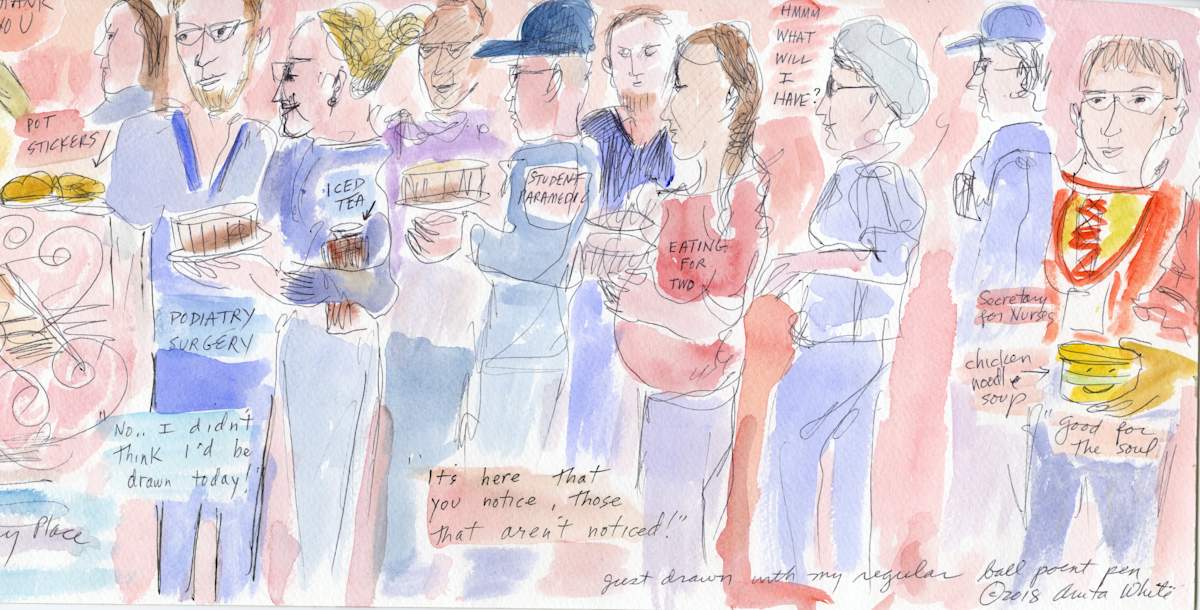 THANK
YOU
POT
STICKERS
HMMM
WHAT
WILL
I
HAVE?
ICED
TEA
STUDENT
PARAMEDIC
EATING
FOR
TWO
PODIATRY
SURGERY
Secretary
for Nurses
chicken
noodle
soup
"good for
The soul
"No.. I didn't
think I'd be
drawn today!"
It's here that
you notice, those
that aren't noticed!"
y Place
just drawn with my regular ball point pen
©2018 Anita White